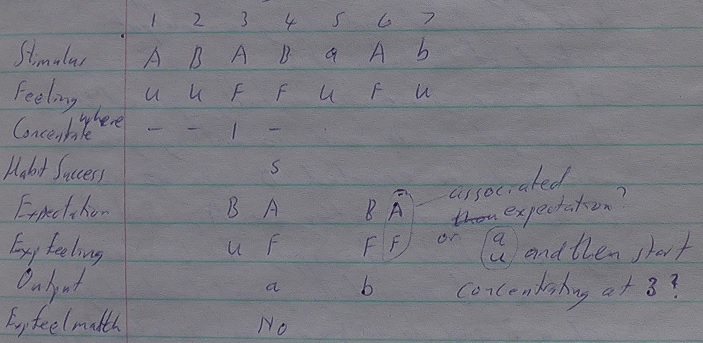 1 2 3 4 5 6 7
Stimulus A B A B a A b
Feeling U U F F U F U
Concentrate where - - 1 - .
Habit Success S
Expectation B A B A associated expectation?
Exp feeling U F F F or a u and then start
Output a b concentrating at 3?
Exp feel match No